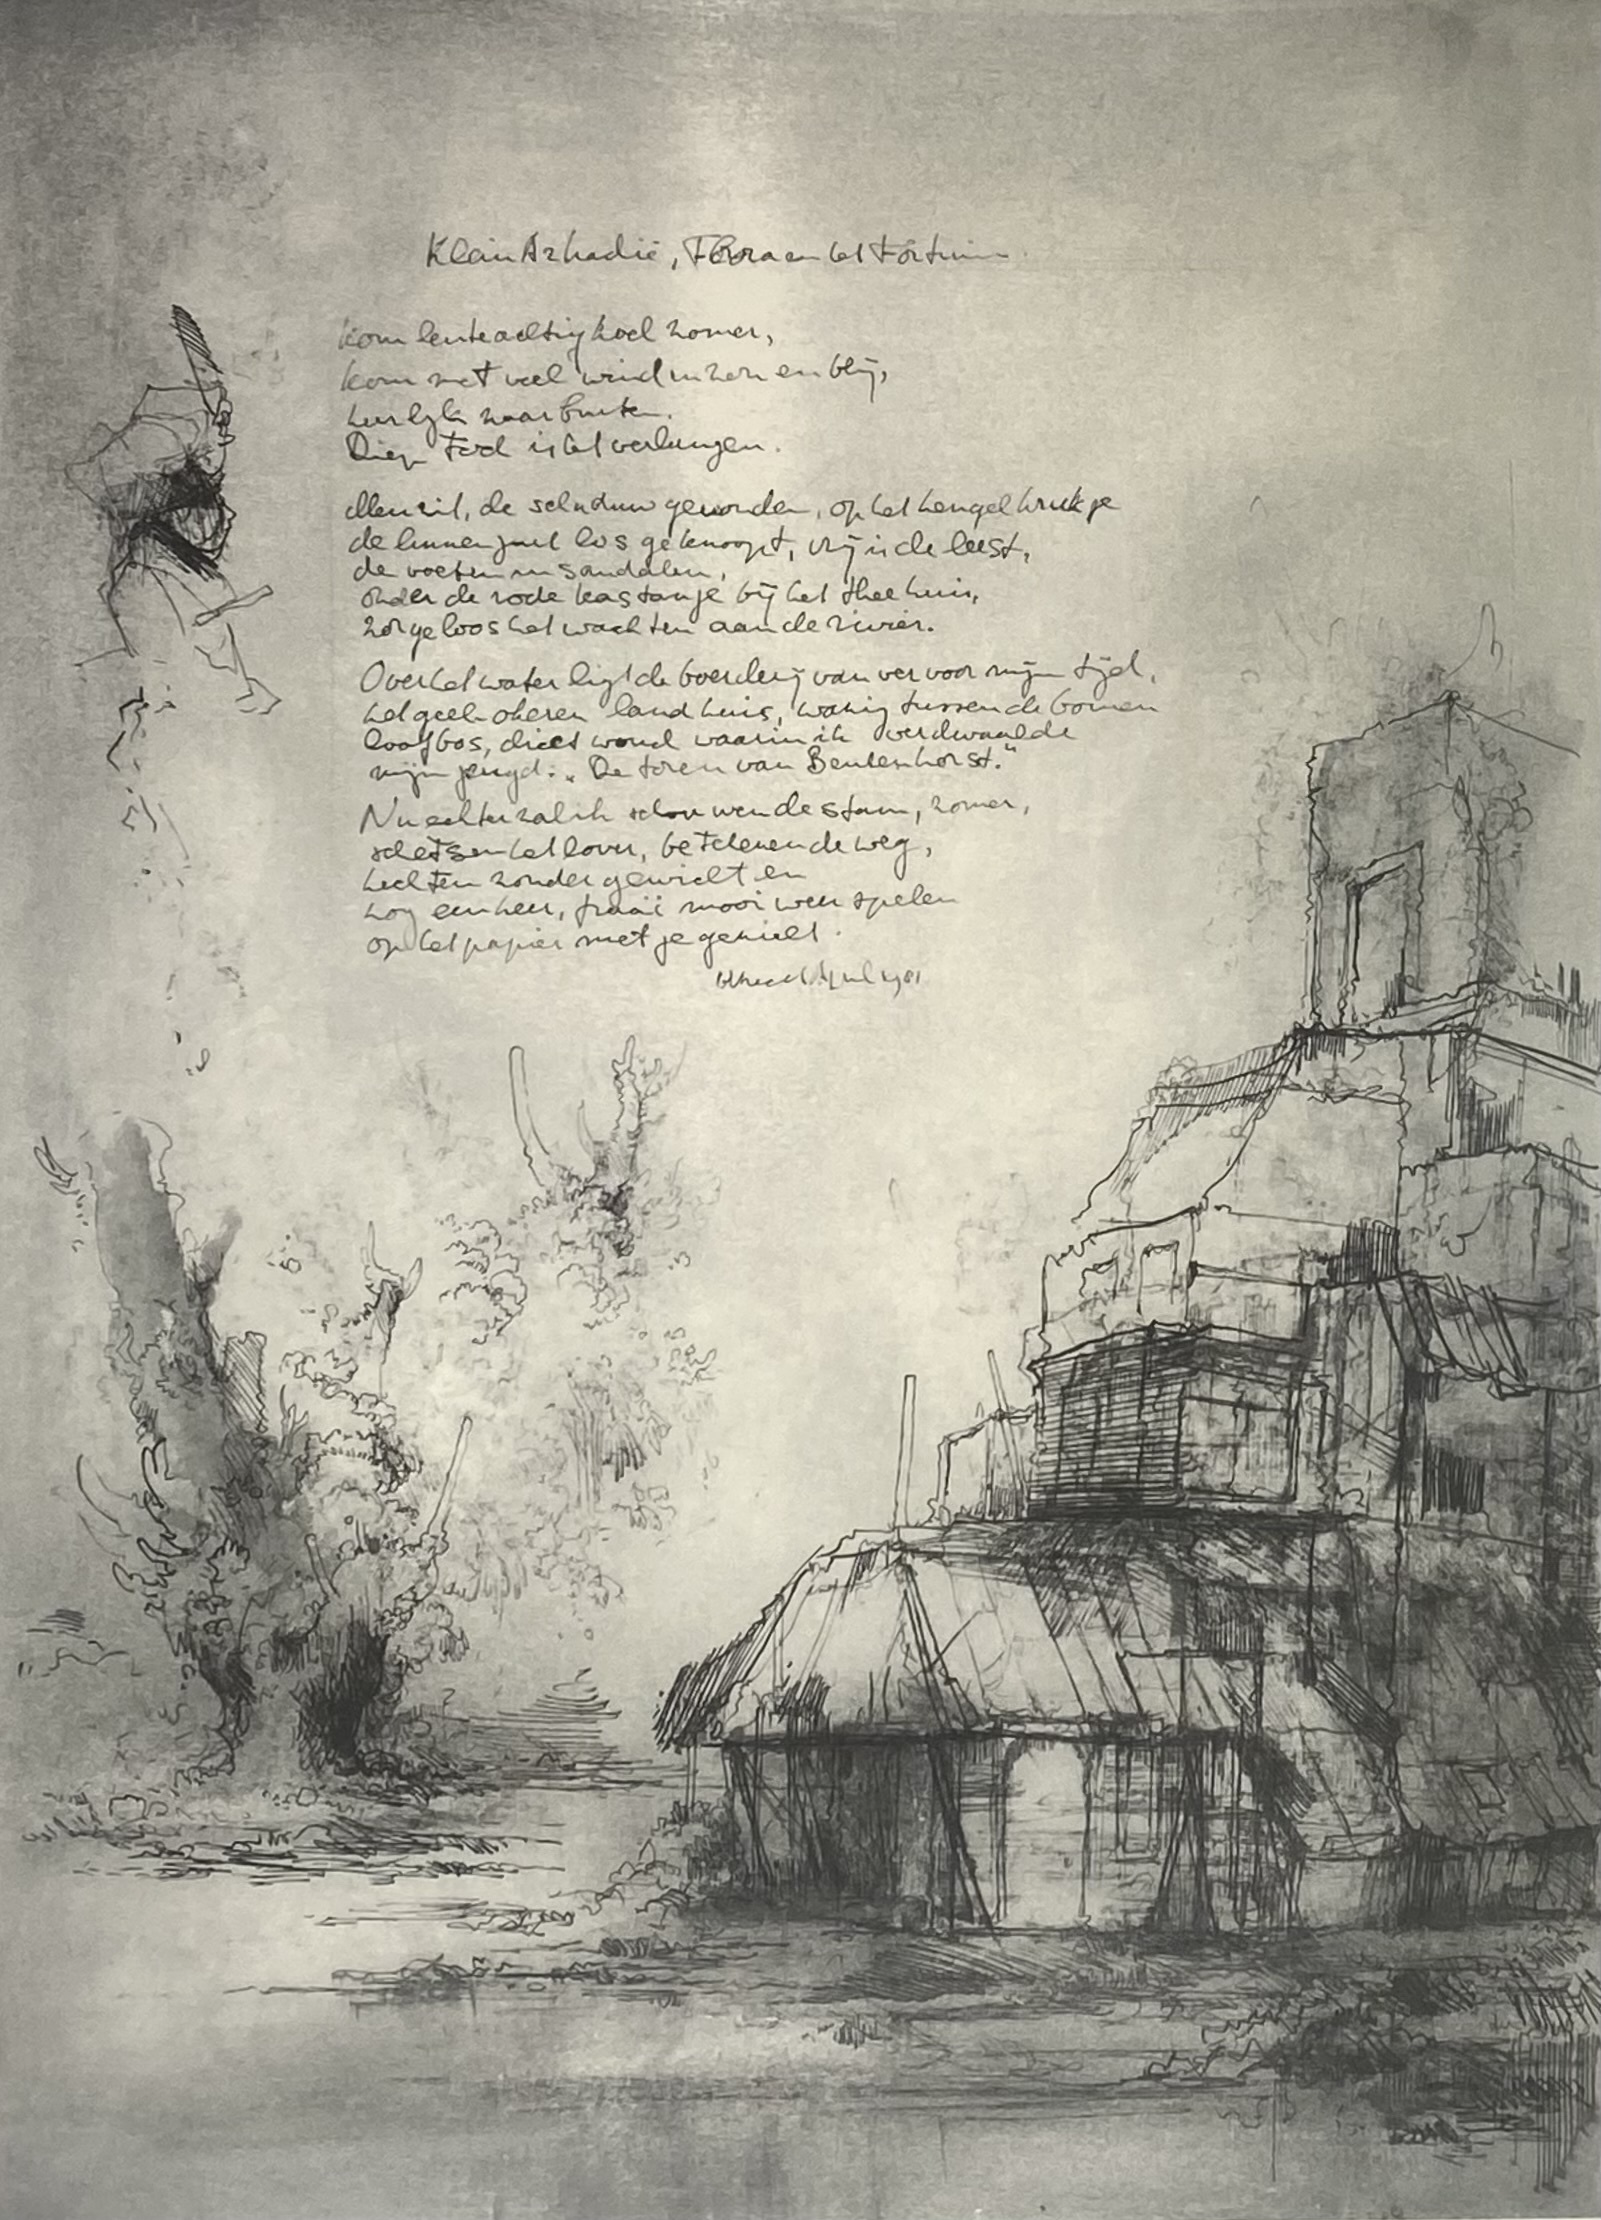 Klein Arkadië, Flora en het Fortuin
kom lenteachtig koel zomer,
kom met veel wind en zon en blij,
heerlijk naar buiten.
Diep rood is het verlangen.
Men zit, de schaduw gevonden, op het hengelkrukje
de linnen los geknoopt, vrij is de leest,
de voeten in sandalen,
onder de rode kastanje bij het theehuis,
zorgeloos het wachten aan de rivier.
Over het water ligt de boerderij van ver voor mijn tijd,
het geel okeren landhuis, wazig tussen de bomen
loofbos, dicht woud waarin ik verdwaalde
mijn jeugd: „De toren van Beukenhorst."
Nu echter zal ik schouwen de stam, zomer,
schetsen het lover, betekenen de weg,
zonder gewicht en
nog een keer, fraai mooi weer spelen
op het papier met je geniet.